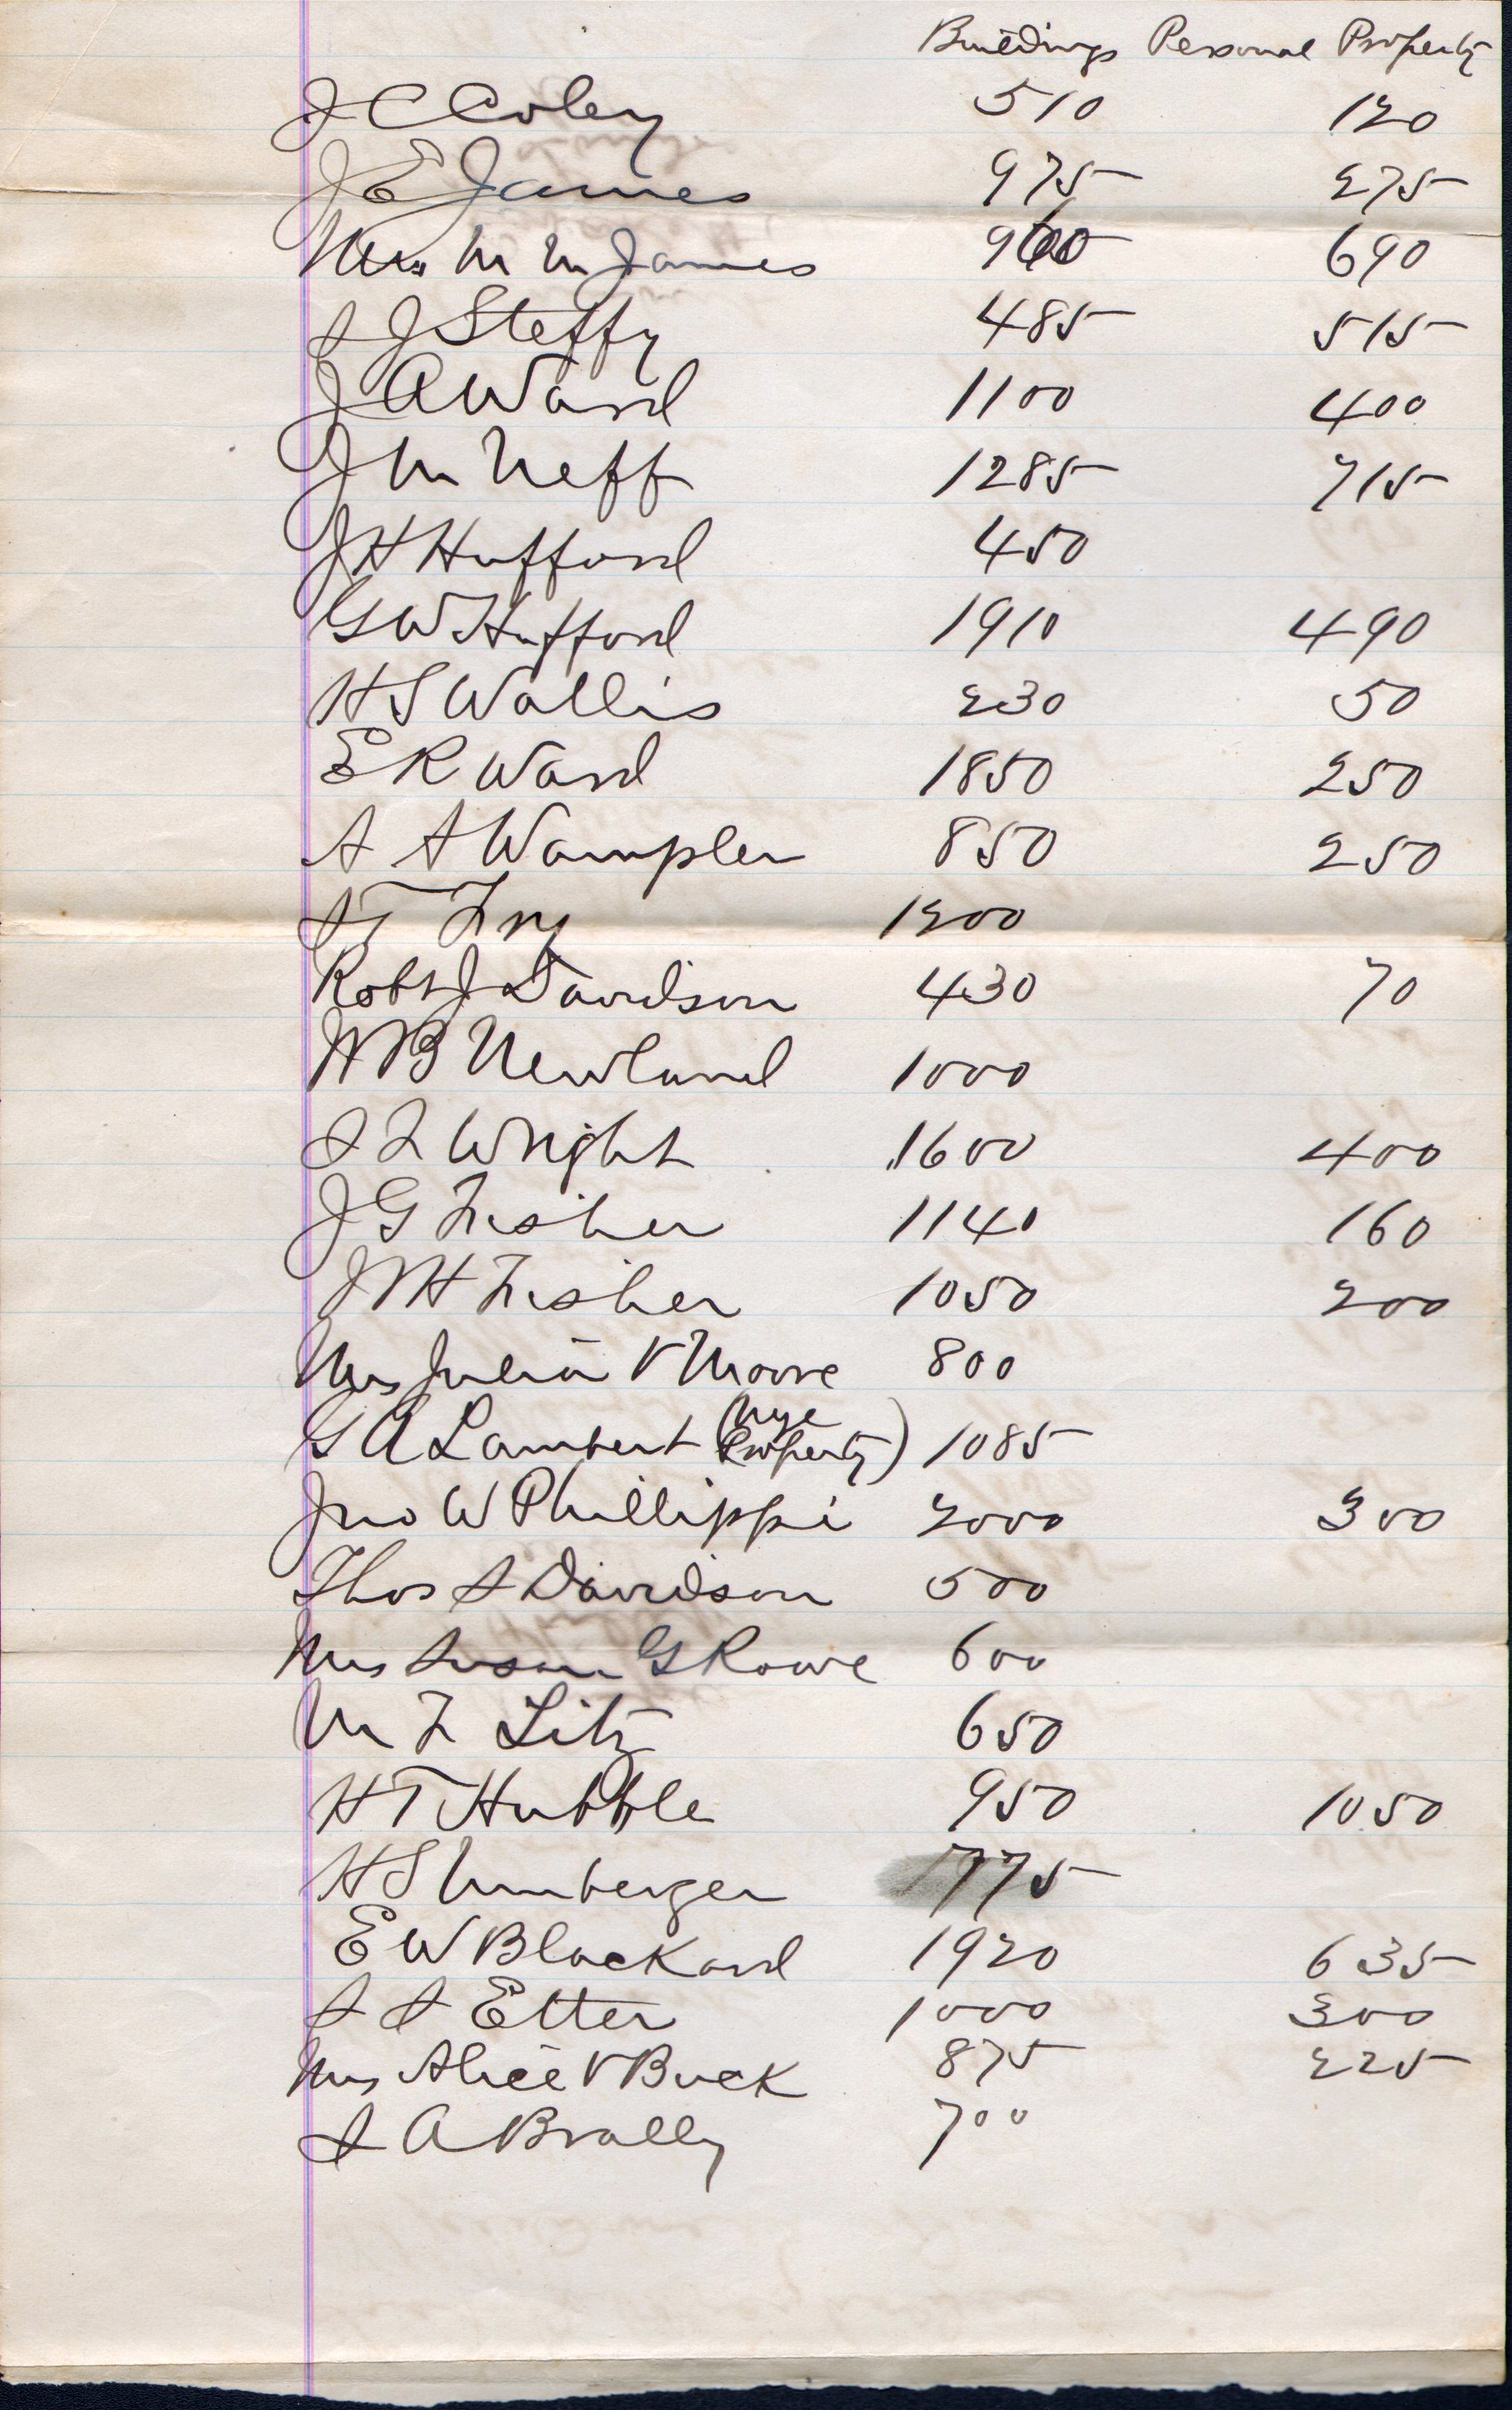 Buildings Personal Property
J C Coley 510 120
J E James 975 275
Mrs M M James 960 690
S J Steffy 485 515
J A Ward 1100 400
J M Neff 1285 715
J H Hufford 450
G W Hufford 1910 490
H S Wallis 230 50
E R Ward 1850 250
S S Wampler 850 250
S T Fry 1200
Robt J Davidson 430 70
W B Newland 1000
S F Wright 1600 400
J G Fisher 1140 160
J W H Fisher 1050 200
Mrs Julia V Moore 800
G A Lambert (Nye Property) 1085
Jno W Phillippi 2000 300
Thos S Davidson 500
Mrs Susan G Rowe 600
M F Litz 650
H T Hubble 950 1050
H S Umberger 1775
E W Blackard 1920 635
S S Etter 1000 300
Mrs Alice V Buck 875 225
S A Bralley 700